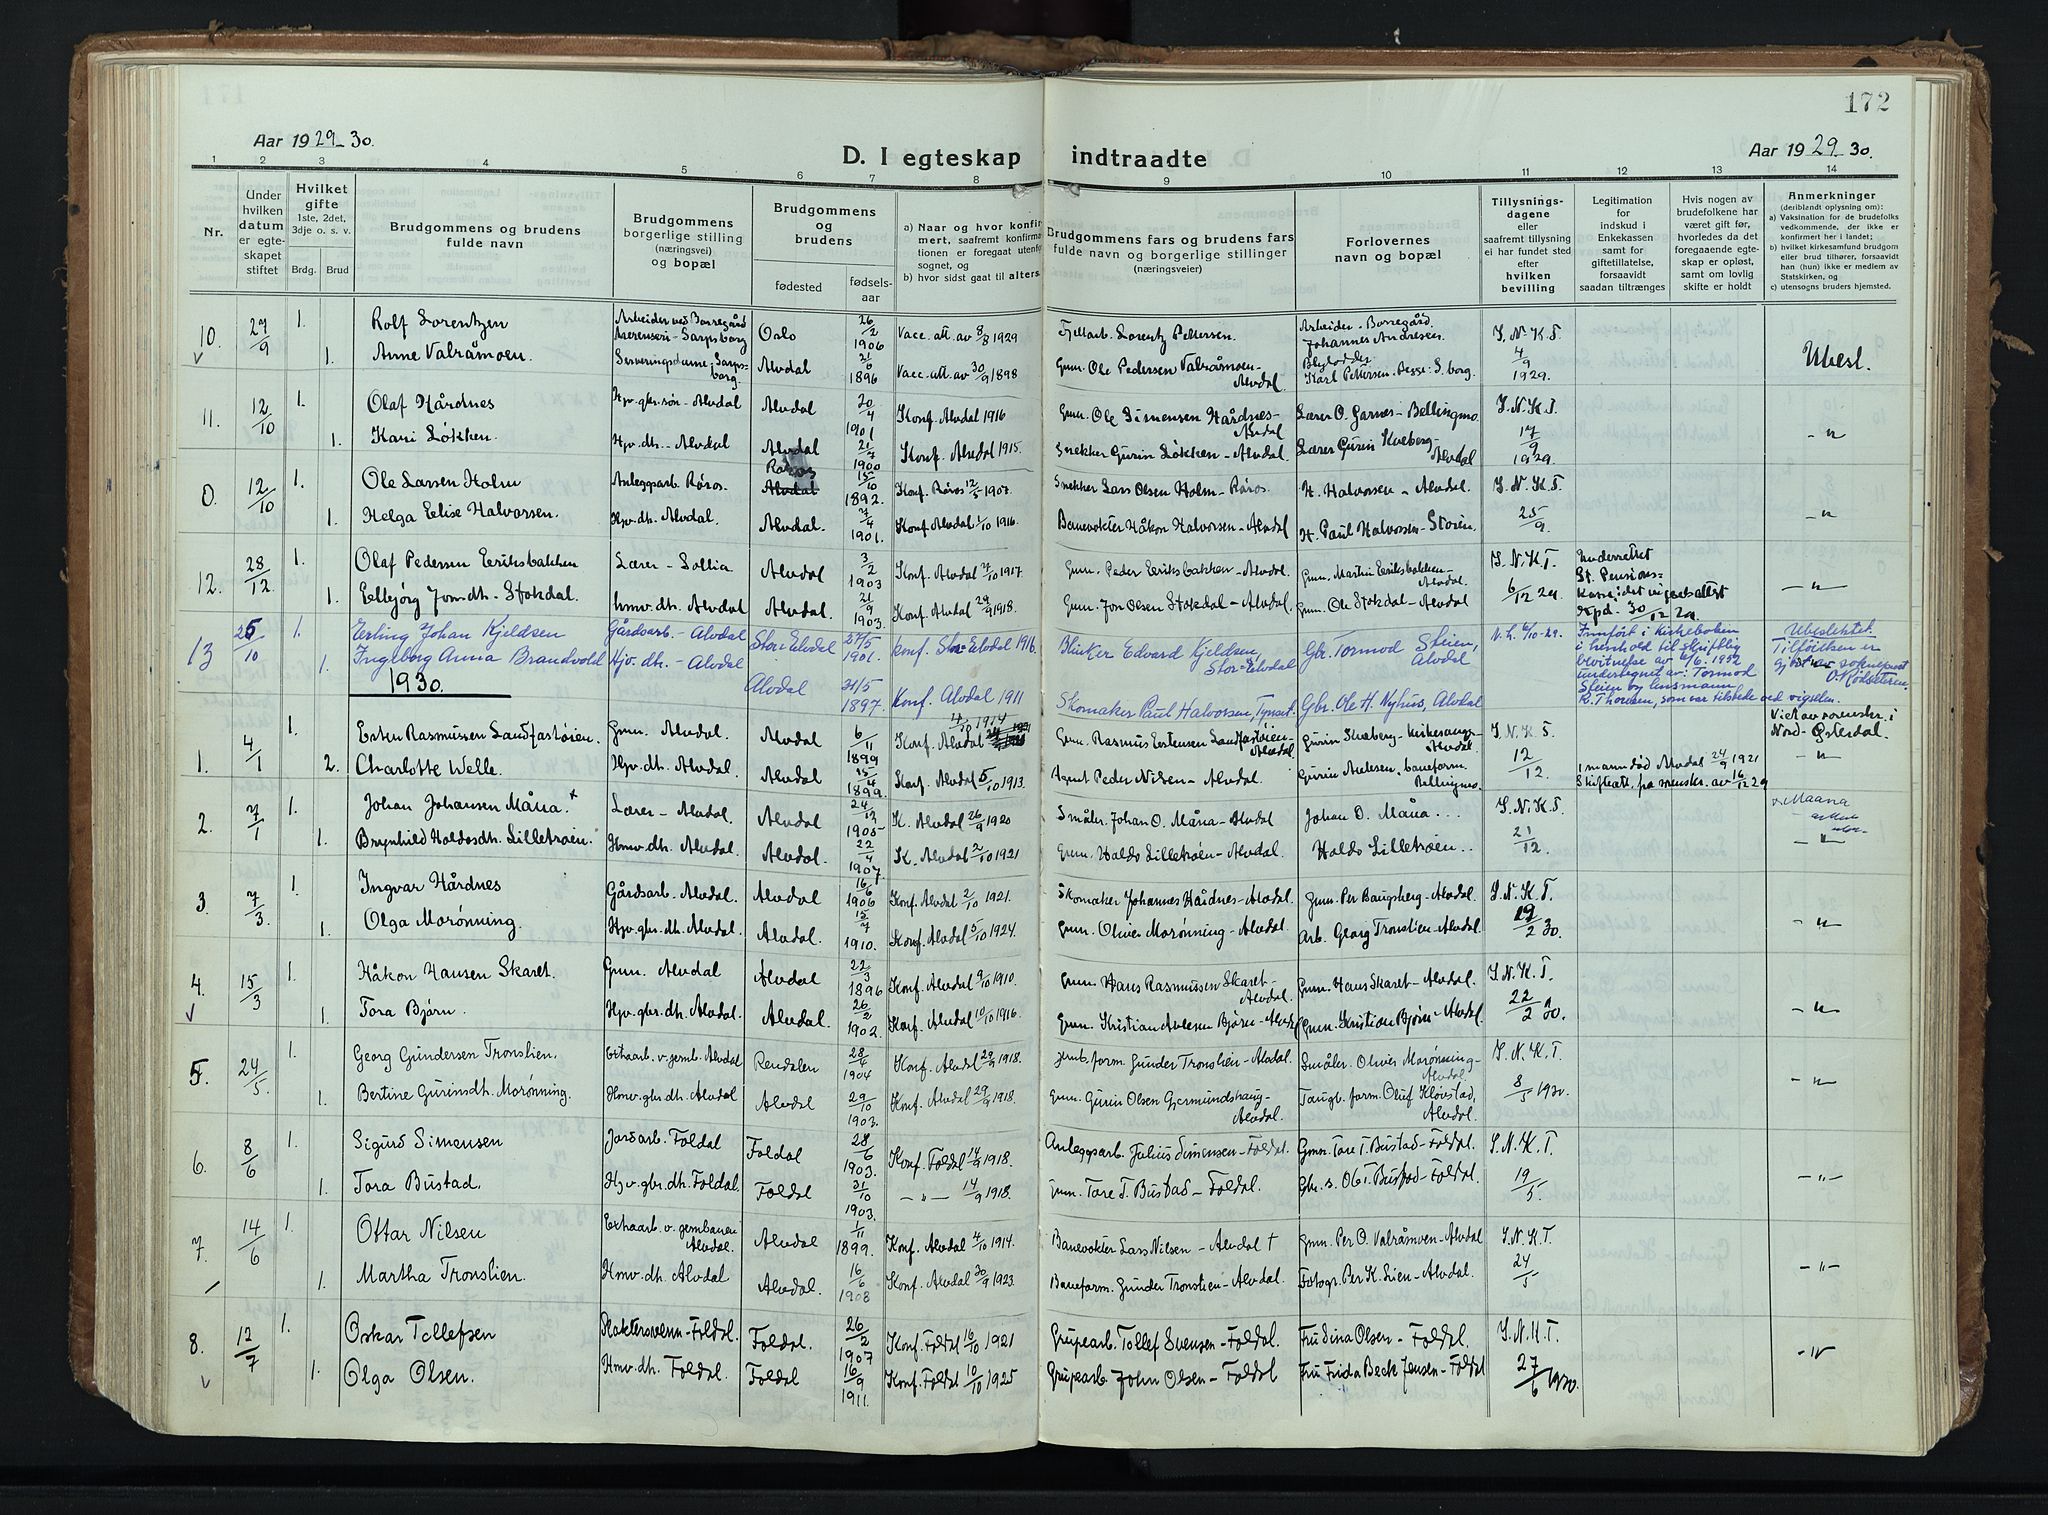 172
Aar 1929-30.
D. I egteskap indtraadte
Aar 1929-30.
1 2 3 4 5 6 7 8 9 10 11 12 13 14
Nr.
Under hvilken datum er egteskapet stiftet
Hvilket gifte 1ste, 2det, 3dje o. s. v.
Brdg. Brud
Brudgommens og brudens fulde navn
Brudgommens borgerlige stilling (næringsvei) og bopæl
Brudgommens og brudens
fødested
fødselsaar
a) Naar og hvor konfirmert, saafremt konfirmationen er foregaat utenfor sognet, og
b) hvor sidst gaat til alters
Brudgommens fars og brudens fars fulde navn og borgerlige stillinger (næringsveier)
Forlovernes navn og bopæl
Tillysningsdagene eller saafremt tillysning ei har fundet sted efter hvilken bevilling
Legitimation for indskud i Enkekassen samt for giftetillatelse, forsaavidt saadan tiltrænges
Hvis nogen av brudefolkene har været gift før, hvorledes da det foregaaende egteskap er opløst, samt om lovlig skifte er holdt
Anmerkninger (deriblandt oplysning om):
a) Vaksination for de brudefolks vedkommende, der ikke er konfirmert her i landet;
b) hvilket kirkesamfund brudgom eller brud tilhører, forsaavidt han (hun) ikke er medlem av Statskirken, og
c) utensogns bruders hjemsted.
10. 27/9 1. Rolf Lorentzen Arbeider ved Borregård Sarpsborg Oslo 26/2 1906 Vacc. att. av 8/8 1929 Fjellarb. Lorentz Pettersen. Arbeider - Borregård. Johannes Andresen S. N. K. T. 4/9 1929. Ubesl.
1. Anne Valråmoen. Serveringsdame, Sarpsborg. Alvdal 21/6 1896 Vacc. att. av 30/9 1898 Gmn. Ole Pedersen Valråmoen - Alvdal Karl Pettersen
11. 12/10 1. Olaf Hårdnes Hjv. gbr. søn - Alvdal Alvdal 20/4 1901 Konf. Alvdal 1916 Gmn. Ole Simensen Hårdnes - Alvdal Lærer O. Garnes - Bellingmo. S. N. K. T. 17/9 1929. - " -
1. Kari Løkken. Hjv. dh. - Alvdal Alvdal 21/7 1900 Konf. Alvdal 1915. Snekker Gurin Løkken - Alvdal. Lærer Gurin Kveberg - Alvdal
0. 12/10 1. Ole Larsen Holm Anleggsarb. Røros. Røros 15/10 1892. Konf. Røros 12/5 1907. Snekker Lars Olsen Holm - Røros. H. Halvorsen - Alvdal. S. N. K. T. 25/9. - " -
1. Helga Elise Halvorsen. Hjv. dh. Alvdal. Alvdal. 7/4 1901. Konf. Alvdal 1/10 1916. Banevokter Håkon Halvorsen - Alvdal H. Paul Halvorsen - Støren
12. 28/12 1. Olaf Pedersen Eriksbakken Lærer - Sollia Alvdal 3/2 1903 Konf. Alvdal 7/10 1917. Gmn. Peder Eriksbakken - Alvdal. Gmn. Martin Eriksbakken - Alvdal S. N. K. T. 6/12 29. Underrettet St. Pensionskasse 30/12 29. - " -
1. Ellbjørg Jonsdh. Stokdal. hmv. dh. Alvdal Alvdal 21/9 1903. Konf. Alvdal 29/9 1918. Gmn. Jon Olsen Stokdal - Alvdal, Gmn. Ole Stokdal - Alvdal
13 25/10 1. Erling Johan Kjeldsen Gårdsarb. - Alvdal Stor-Elvdal 27/5 1901. Konf. Stor-Elvdal 1916. Blikker Edvard Kjeldsen, Stor-Elvdal Gbr. Tormod Steien, Alvdal N. L. 6/10-29. Innført i kirkeboken i henhold til skriftlig bevitnelse av 6/6. 1932 undertegnet av: Tormod Steien og lensmann R. Thoresen, som var tilstede ved vigselen. Ubeslektet. Tilføielsen er gjort av sokneprest O. Rødseteren.
1. Ingeborg Anna Brandvold Hjv. dh. - Alvdal Alvdal 31/5 1897. Konf. Alvdal 1911 Skomaker Paul Halvorsen, Tynset. Gbr. Ole H. Nyhus, Alvdal
1930.
1. 4/1 1. Esten Rasmussen Sandfastøien. Gmn. Alvdal. Alvdal 6/11 1899 Konf. Alvdal 4/10 1914 Gmn. Rasmus Estensen Sandfastøien - Alvdal Gurin Kveberg - Alvdal S. N. K. T. 12/12. Viet av sorenskr. i Nord-Østerdal.
2. Charlotte Welle. Hjv. dh. Alvdal. Alvdal 15/4 1899. Konf. Alvdal 5/10 1913. Agent Peder Nilsen - Alvdal. Gurin Axelsen, baneform. Bellingmo. 1 mann død Alvdal 24/9 1921 Skifteatt. fra sorenskr. av 16/12 29 - " -
2. 7/1 1. Johan Johansen Måna. + Lærer - Alvdal Alvdal 24/12 1905 K. Alvdal 26/9 1920 Småbr. Johan O. Måna - Alvdal Johan O. Måna S. N. K. T. 21/12. Maana
1. Brynhild Haldosdh. Lilletrøen. Hmv. dh. Alvdal. Alvdal. 22/4 1907. K. Alvdal 2/10 1921 Gmn. Haldo Lilletrøen - Alvdal. Haldo Lilletrøen - " -
3. 7/3 1. Ingvar Hårdnes Gårdsarb. Alvdal Alvdal 16/6 1906 Konf. Alvdal 2/10 1921. Skomaker Johannes Hårdnes - Alvdal. Gmn. Per Baugsberg - Alvdal. S. N. K. T. 19/2 30. - " -
1. Olga Morønning. Hjv. gbr. dh. Alvdal. Alvdal. 15/7 1910. Konf. Alvdal 5/10 1924. Gmn. Oliver Morønning - Alvdal. Arb. Georg Tronslien - Alvdal.
4. 15/3 1. Håkon Hansen Skaret. Gmn. Alvdal Alvdal 22/3 1896 Konf. Alvdal 9/10 1910. Gmn. Hans Rasmussen Skaret - Alvdal. Gmn. Hans Skaret - Alvdal. S. N. K. T. 22/2 30. - " -
1. Tora Bjørn. Hjv. gbr. dh. Alvdal. Alvdal. 26/2 1902. Konf. Alvdal 10/10 1916. Gmn. Kristian Bjørn - Alvdal Gmn. Kristian Bjørn - Alvdal
5. 24/5 1. Georg Gundersen Tronslien. Extraarb. v. jernb. Alvdal Rendalen 28/4 1904 Konf. Alvdal 29/9 1918. Jernb. form. Gunder Tronslien - Alvdal. Småbr. Oliver Morønning - Alvdal S. N. K. T. 8/5 1930. - " -
1. Bertine Gurinsdh. Morønning. Hmv. gbr. dh. Alvdal Alvdal 29/10 1903. Konf. Alvdal 29/9 1918. Gmn. Gurin Olsen Gjermundshaug - Alvdal. Oluf Kløvstad, Alvdal.
6. 8/6 1. Sigurd Simensen Jordarb. Foldal Foldal 28/6 1903. Konf. Foldal 14/9 1918. Anleggsarb. Julius Simensen - Foldal. Gmn. Tore T. Bustad - Foldal. S. N. K. T. 19/5. - " -
1. Tora Bustad. Hjv. gbr. dh. Foldal. Foldal 31/10 1903. - " - 14/9 1918. Gmn. Tore T. Bustad - Foldal. Gbr. s. Ole T. Bustad - Foldal.
7. 14/6 1. Ottar Nilsen Extraarb. v. jernbanen Alvdal. Alvdal 1/11 1899. Konf. Alvdal 4/10 1914. Banevokter Lars Nilsen - Alvdal + Gmn. Per O. Valråmoen - Alvdal S. N. K. T. 24/5 - " -
1. Martha Tronslien. Hmv. dh. Alvdal Alvdal. 16/6 1908 Konf. Alvdal 30/9 1923. Baneform. Gunder Tronslien - Alvdal. Fotogr. Per K. Lien - Alvdal.
8. 12/7 1. Oskar Tollefsen Foldal. Foldal. 26/2 1907 Konf. Foldal 16/10 1921 Grupearb. Tollef Svensen - Foldal. Fru Dina Olsen - Foldal. S. N. K. T. 27/6 1930. - " -
1. Olga Olsen. Hmv. dh. Foldal. Foldal 16/9 1911. Konf. Foldal 10/10 1925 Grupearb. John Olsen - Foldal Fru Frida Beck Jensen - Foldal